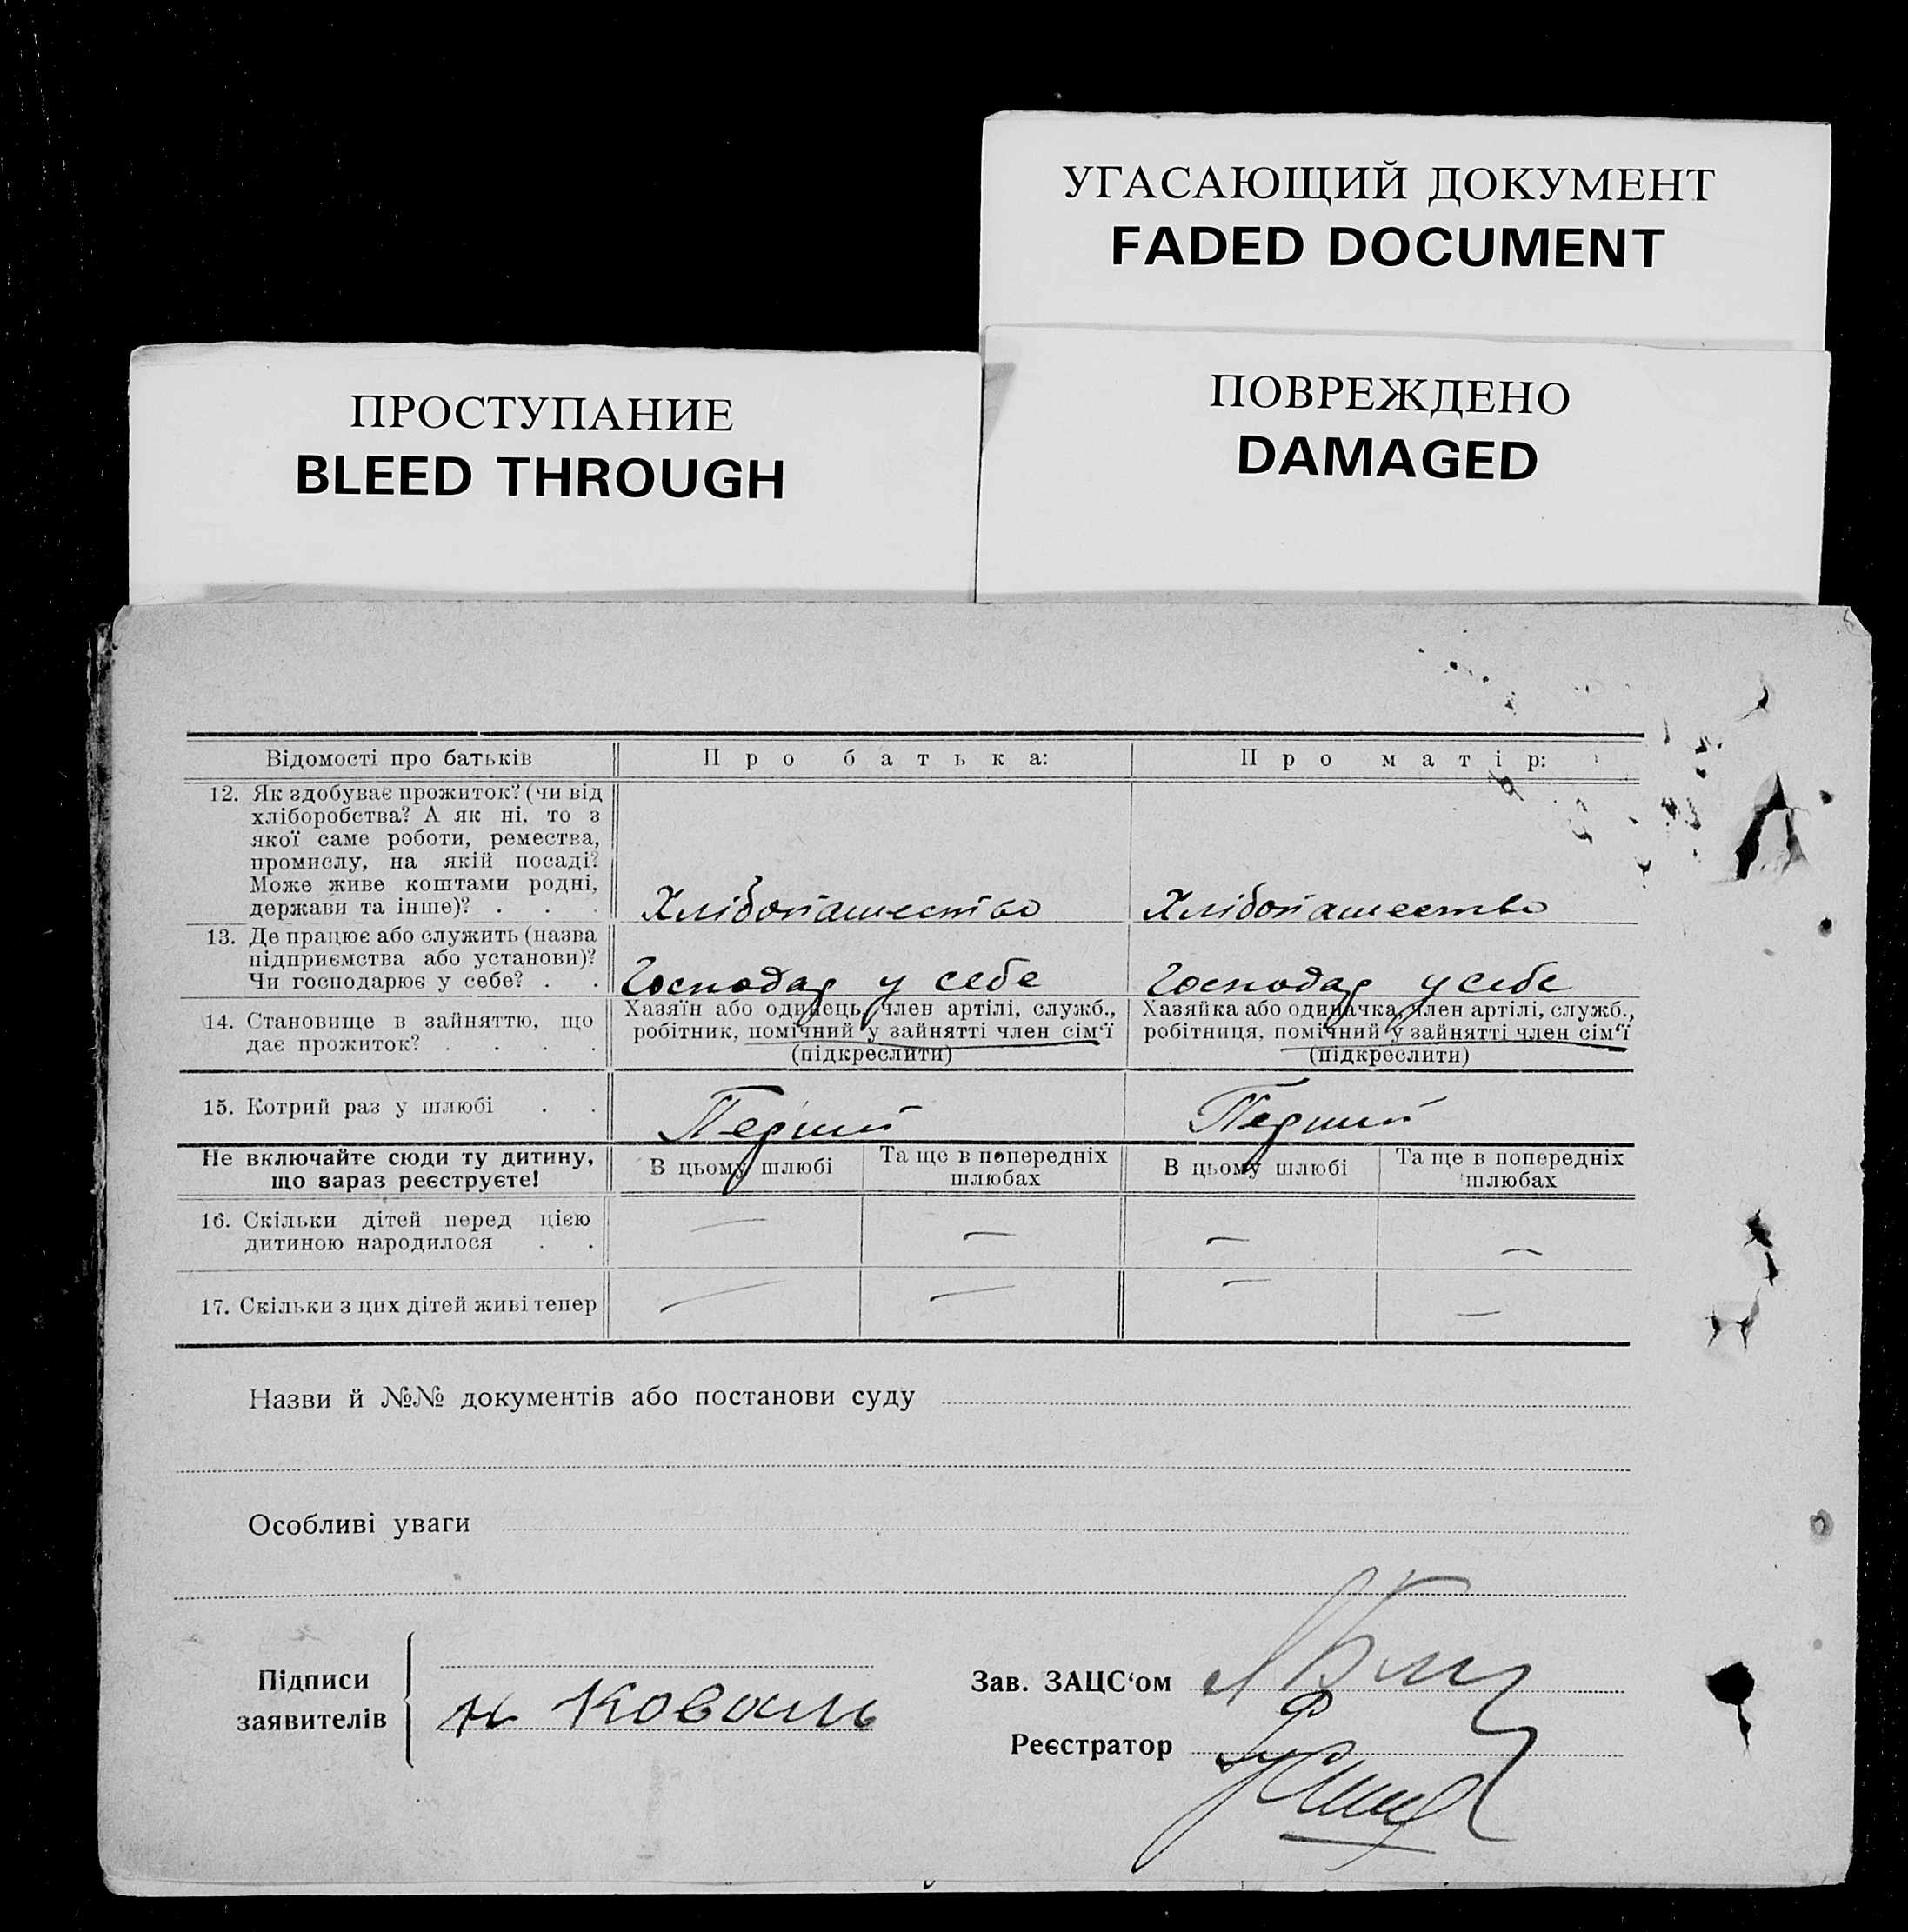 УГАСАЮЩИЙ ДОКУМЕНТ
FADED DOCUMENT
ПРОСТУПАНИЕ
BLEED THROUGH
ПОВРЕЖДЕНО
DAMAGED
Відомості про батьків
Про батька:
Про матір:
12. Як здобуває прожиток? (чи від
хліборобства? А як ні, то з
якої саме роботи, ремества,
промислу, на якій посаді?
Може живе коштами родні,
держави та інше)? . . .
Хлібопашество
Хлібопашество
13. Де працює або служить (назва
підприємства або установи)?
Чи господарює у себе? . .
Господар у себе
Господар у себе
14. Становище в зайняттю, що
дає прожиток? . . . .
Хазяїн або одинець, член артілі, служб.,
робітник, помічний у зайнятті член сім'ї
(підкреслити)
Хазяйка або одиначка, член артілі, служб.,
робітниця, помічний у зайнятті член сім'ї
(підкреслити)
15. Котрий раз у шлюбі . .
Перший
Перший
Не включайте сюди ту дитину,
що зараз реєструєте!
В цьому шлюбі
Та ще в попередніх
шлюбах
В цьому шлюбі
Та ще в попередніх
шлюбах
16. Скільки дітей перед цією
дитиною народилося . .
— — — —
17. Скільки з цих дітей живі тепер
— — — —
Назви й №№ документів або постанови суду
Особливі уваги
Підписи
заявителів
Коваль
Зав. ЗАЦС‘ом
Реєстратор